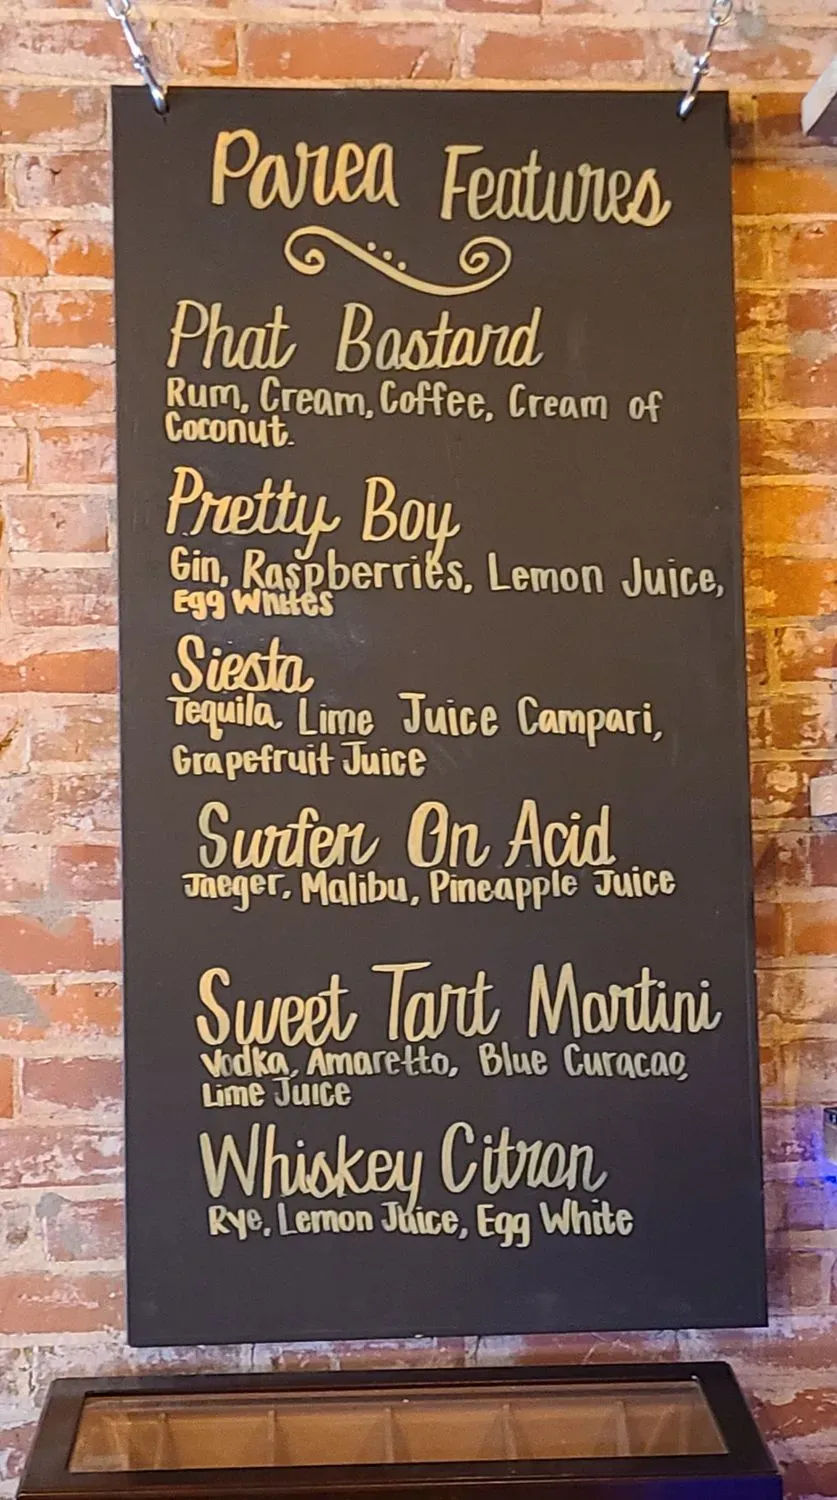 Parea Features
Phat Bastard
Rum, Cream, Coffee, Cream of
Coconut.
Pretty Boy
Gin, Raspberries, Lemon Juice,
Egg Whites
Siesta
Tequila, Lime Juice Campari,
Grapefruit Juice
Surfer On Acid
Jaeger, Malibu, Pineapple Juice
Sweet Tart Martini
Vodka, Amaretto, Blue Curacao,
Lime Juice
Whiskey Citron
Rye, Lemon Juice, Egg White